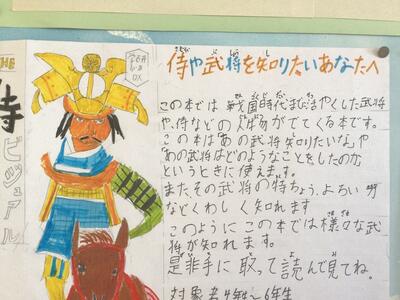 THE
侍
ビジュアル
DX
侍や武将を知りたいあなたへ
この本では戦国時代まで活やくした武将
や、侍などの人物がでてくる本です。
この本はあの武将知りたいな。や
あの武将はどのようなことをしたのか
というときに使えます。
また、その武将の特ちょう、よろい
などくわしく知れます
このようにこの本では様々な武
将が知れます。
是非手に取って読んで見てね。
対象者4年生~6年生